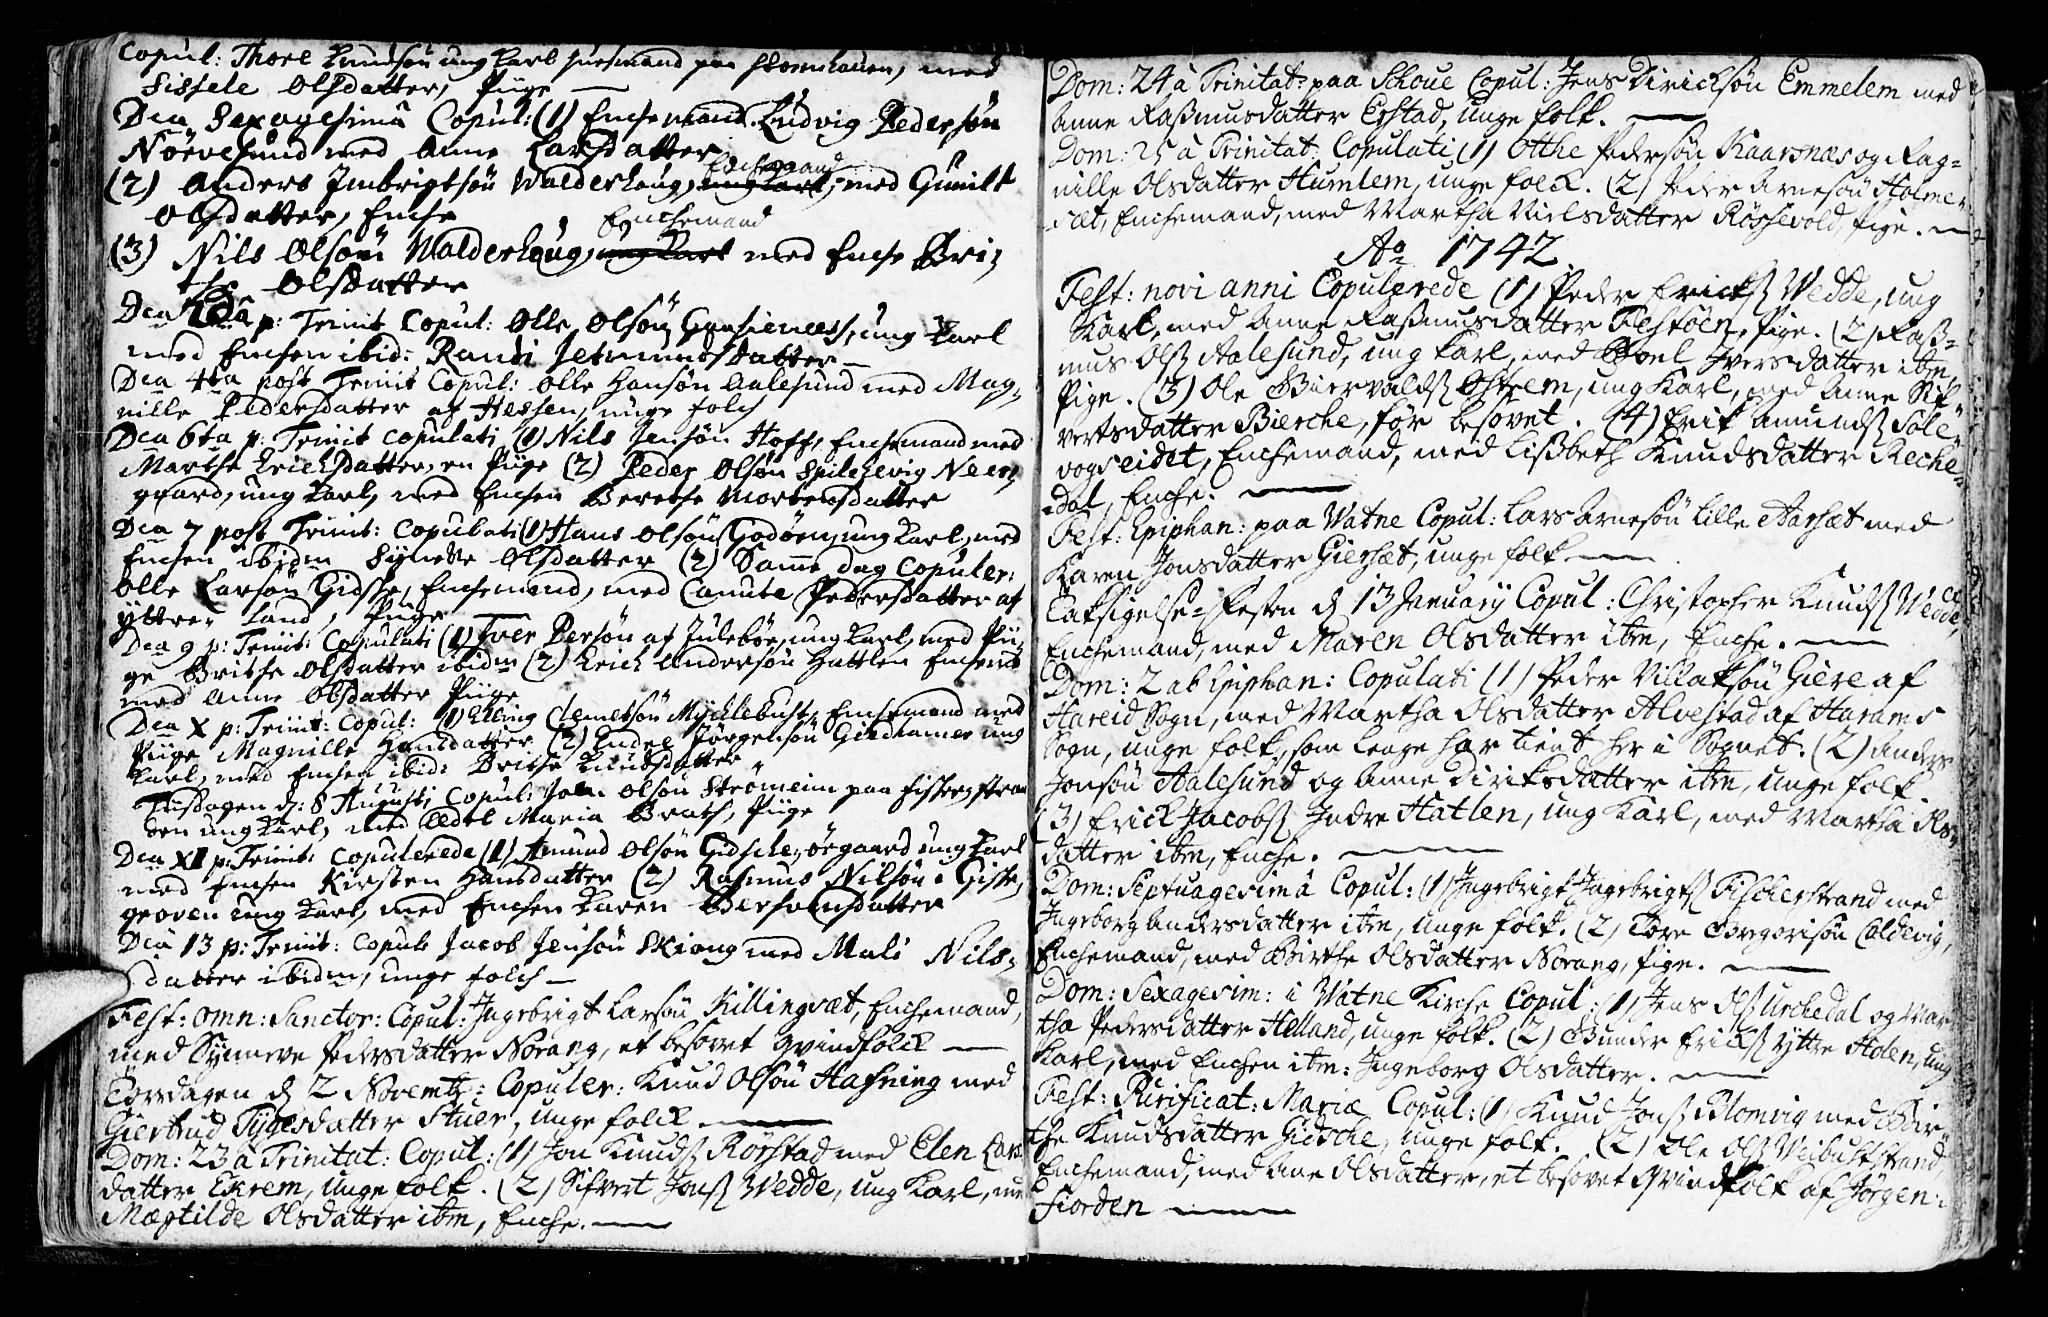 Copul: Thore Knudsøn ung Karl huusmand paa Stornhauen, med
Sissele Olsdatter, Piige
Dca Sexagesima Copul: (1) Enchemand Ludvig Pedersøn
Nörvesund med Anne Larsdatter
(2) Anders Imbrigtsøn Walderhoug, Enchemand ung Karl, med Gunilt
Olsdatter, Enche
(3) Nils Olsøn Walderhoug, Enchemand ung Karl med Enche Bri-
the Olsdatter
Dca 2da p: Trinit Copul: Olle Olsön, ung Karl
med Enchen ibid: Randi Jetmundsdatter
Dca 4ta post Trinit Copul: Olle Hansøn Aalesund med Mag-
nille Pedersdatter af Hessen, unge folch
Dca 6ta p: Trinit Copulati (1) Nils Jensøn Hoff, Enchemand med
Marthe Erichsdatter, en Piige (2) Peder Olsøn Spilchevig Neer-
gaard, ung Karl, med Enchen Berethe Mortensdatter
Dca 7 post Trinit: Copulati (1) Hans Olsøn Godøen, ung Karl, med
Enchen ibidm Synneve Olsdatter (2) Samme dag Copuler:
Olle Larsøn Gidske, Enchemand, med Canute Pedersdatter af
yttre Land, Piige
Dca 9 p: Trinit: Copulati (1) Iver Persøn af Julebøe, ung Karl, med Pii-
ge Brithe Olsdatter ibidm (2) Erich Andersøn Hattlen Enchemd
med Anne Olsdatter Piige
Dca X p: Trinit: Copul: (1) Elling Clemetsøn Myklebust, Enchemand med
Piige Magnille Hansdatter (2) Endel Jørgensøn Giedhamer ung
Karl, med Enchen ibid: Brithe Knudsdatter
Tiisdagen d: 8 Augusti Copul: Joen Olsøn Strömeim paa Fisker stran
den ung Karl, med Edel Maria Brath, Piige
Dca XI p: Trinit: Copulerede (1) Amund Olsøn Gidsche, örgaard ung Karl
med Enchen Kirsten Hansdatter (2) Rasmus Nilsøn i Giske,
groven ung Karl, med Enchen Karen Bersvensdatter
Dca 13 p: Trinit: Copul: Jacob Jensøn Skiong med Mali Nils-
datter ibidm, unge folch
Fest: omn: Sanctor: Copul: Ingebrigt Larsøn Killingsæt, Enchemand,
med Synneve Pedersdatter Norang, et besovet qvindfolck
Torsdagen d 2 Novembr: Copuler: Knud Olsøn Hafning med
Giertrud Tygesdatter Stuer, unge folck.
Dom: 23 à Trinitat: Copul: (1) Jon Knuds Rörstad med Elen Lars
datter Ekrem, unge folk. (2) Sifvert Jons Wedde, ung Karl, me
Mægtilde Olsdatter ibm, Enche.
Dom: 24 à Trinitat: paa Skoue Copul: Jens Diricksøn Emmelem med
Anne Rasmusdatter Erstad, unge folk.
Dom: 25 à Trinitat: Copulati (1) Otthe Pedersøn Kaarsnæs og Rag-
nille Olsdatter Humlem, unge folck. (2) Peder Arnesøn Holme-
sæt, Enchemand, med Martha Nielsdatter Rössevold, pige.
Ao 1742
Fest: novi anni Copulerede (1) Peder Ericks Wedde, ung
Karl, med Anne Rasmusdatter Festøen, Pige. (2) Ras-
mus Ols Aalesund, ung Karl, med Boel Iversdatter ibm,
Pige. (3) Ole Biervalds Østrem, ung Karl, med Anne Sif-
vertsdatter Bierche, før besovet. (4) Erik Amunds Sole-
vogseidet, Enchemand, med Lisbeth Knudsdatter Reche-
dal, Enche.
Fest: Epiphan: paa Watne Copul: Lars Arnesøn Lille Aarsæt med
Karen Jonsdatter Giersæt, unge folk
Taksigelse-Festen d 13 January Copul: Christopher Knuds Wedde,
Enchemand, med Maren Olsdatter ibm, Enche.
Dom: 2 ab Epiphan: Copulati (1) Peder Villaksøn Giere af
Hareid Sogn, med Martha Olsdatter Alvestad af Harams
Sogn, unge folk, som lenge har tient her i Sognet. (2) Anders
Jonsøn Aalesund og Anne Diriksdatter ibm, unge folk
(3) Erick Jacobs Indre Hatlen, ung Karl, med Martha Rs-
datter ibm, Enche.
Dom: Septuagesimâ Copul: (1) Ingebrigt Ingebrigts Fischerstrand med
Ingeborg Andersdatter ibm, unge folk. (2) Tore Gregorisøn Caldevig,
Enchemand, med Birthe Olsdatter Norang, pige.
Dom: Sexagesim: i Watne Kirche Copul: (1) Jens Ols Urchedal og Mar-
tha Pedersdatter Helland, unge folk. (2) Gunder Ericks Yttre Holen, ung
Karl, med Enchen ibm: Ingeborg Olsdatter.
Fest: Purificat: Mariæ Copul: (1) Knud Jons Blomvig med Bir-
the Knudsdatter Gidsche, unge folk. (2) Ole Ols Weibustrand,
Enchemand, med Ane Olsdatter, et besovet qvindfolk af Jørgen-
fiorden